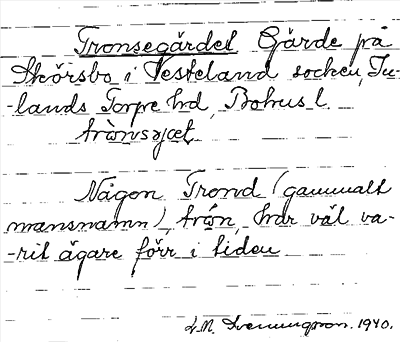 Tronsegärdet Gärde på
Skörsbo i Vesteland socken, In-
-lands Torpe hd, Bohus l.
trònsɉæt
Någon Trond (gammalt
mansnamn), trón, har väl va-
-rit ägare förr i tiden
1940.